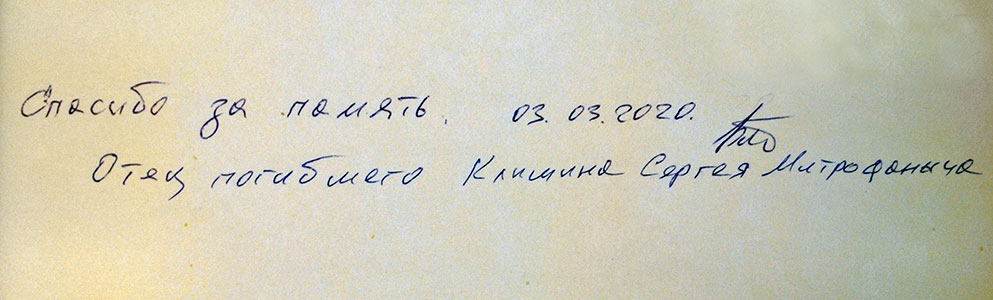 Спасибо за память. 03.03.2020.
Отец погибшего Климина Сергея Митрофаныча